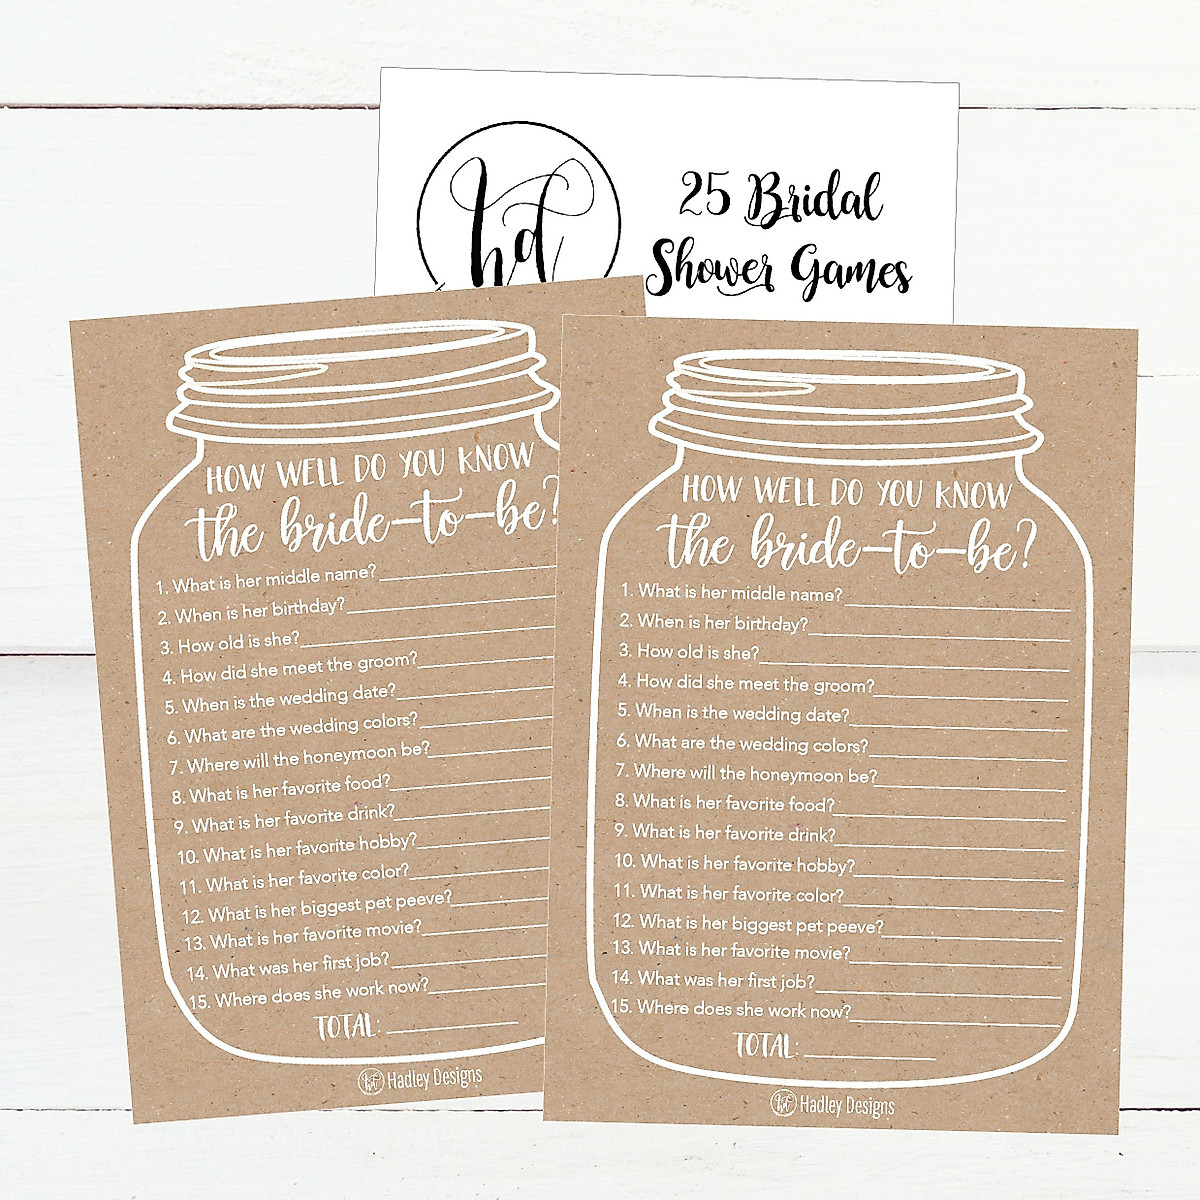 hd
25 Bridal
Shower Games
HOW WELL DO YOU KNOW
the bride-to-be?
1. What is her middle name?
2. When is her birthday?
3. How old is she?
4. How did she meet the groom?
5. When is the wedding date?
6. What are the wedding colors?
7. Where will the honeymoon be?
8. What is her favorite food?
9. What is her favorite drink?
10. What is her favorite hobby?
11. What is her favorite color?
12. What is her biggest pet peeve?
13. What is her favorite movie?
14. What was her first job?
15. Where does she work now?
TOTAL:
hd Hadley Designs
HOW WELL DO YOU KNOW
the bride-to-be?
1. What is her middle name?
2. When is her birthday?
3. How old is she?
4. How did she meet the groom?
5. When is the wedding date?
6. What are the wedding colors?
7. Where will the honeymoon be?
8. What is her favorite food?
9. What is her favorite drink?
10. What is her favorite hobby?
11. What is her favorite color?
12. What is her biggest pet peeve?
13. What is her favorite movie?
14. What was her first job?
15. Where does she work now?
TOTAL:
hd Hadley Designs